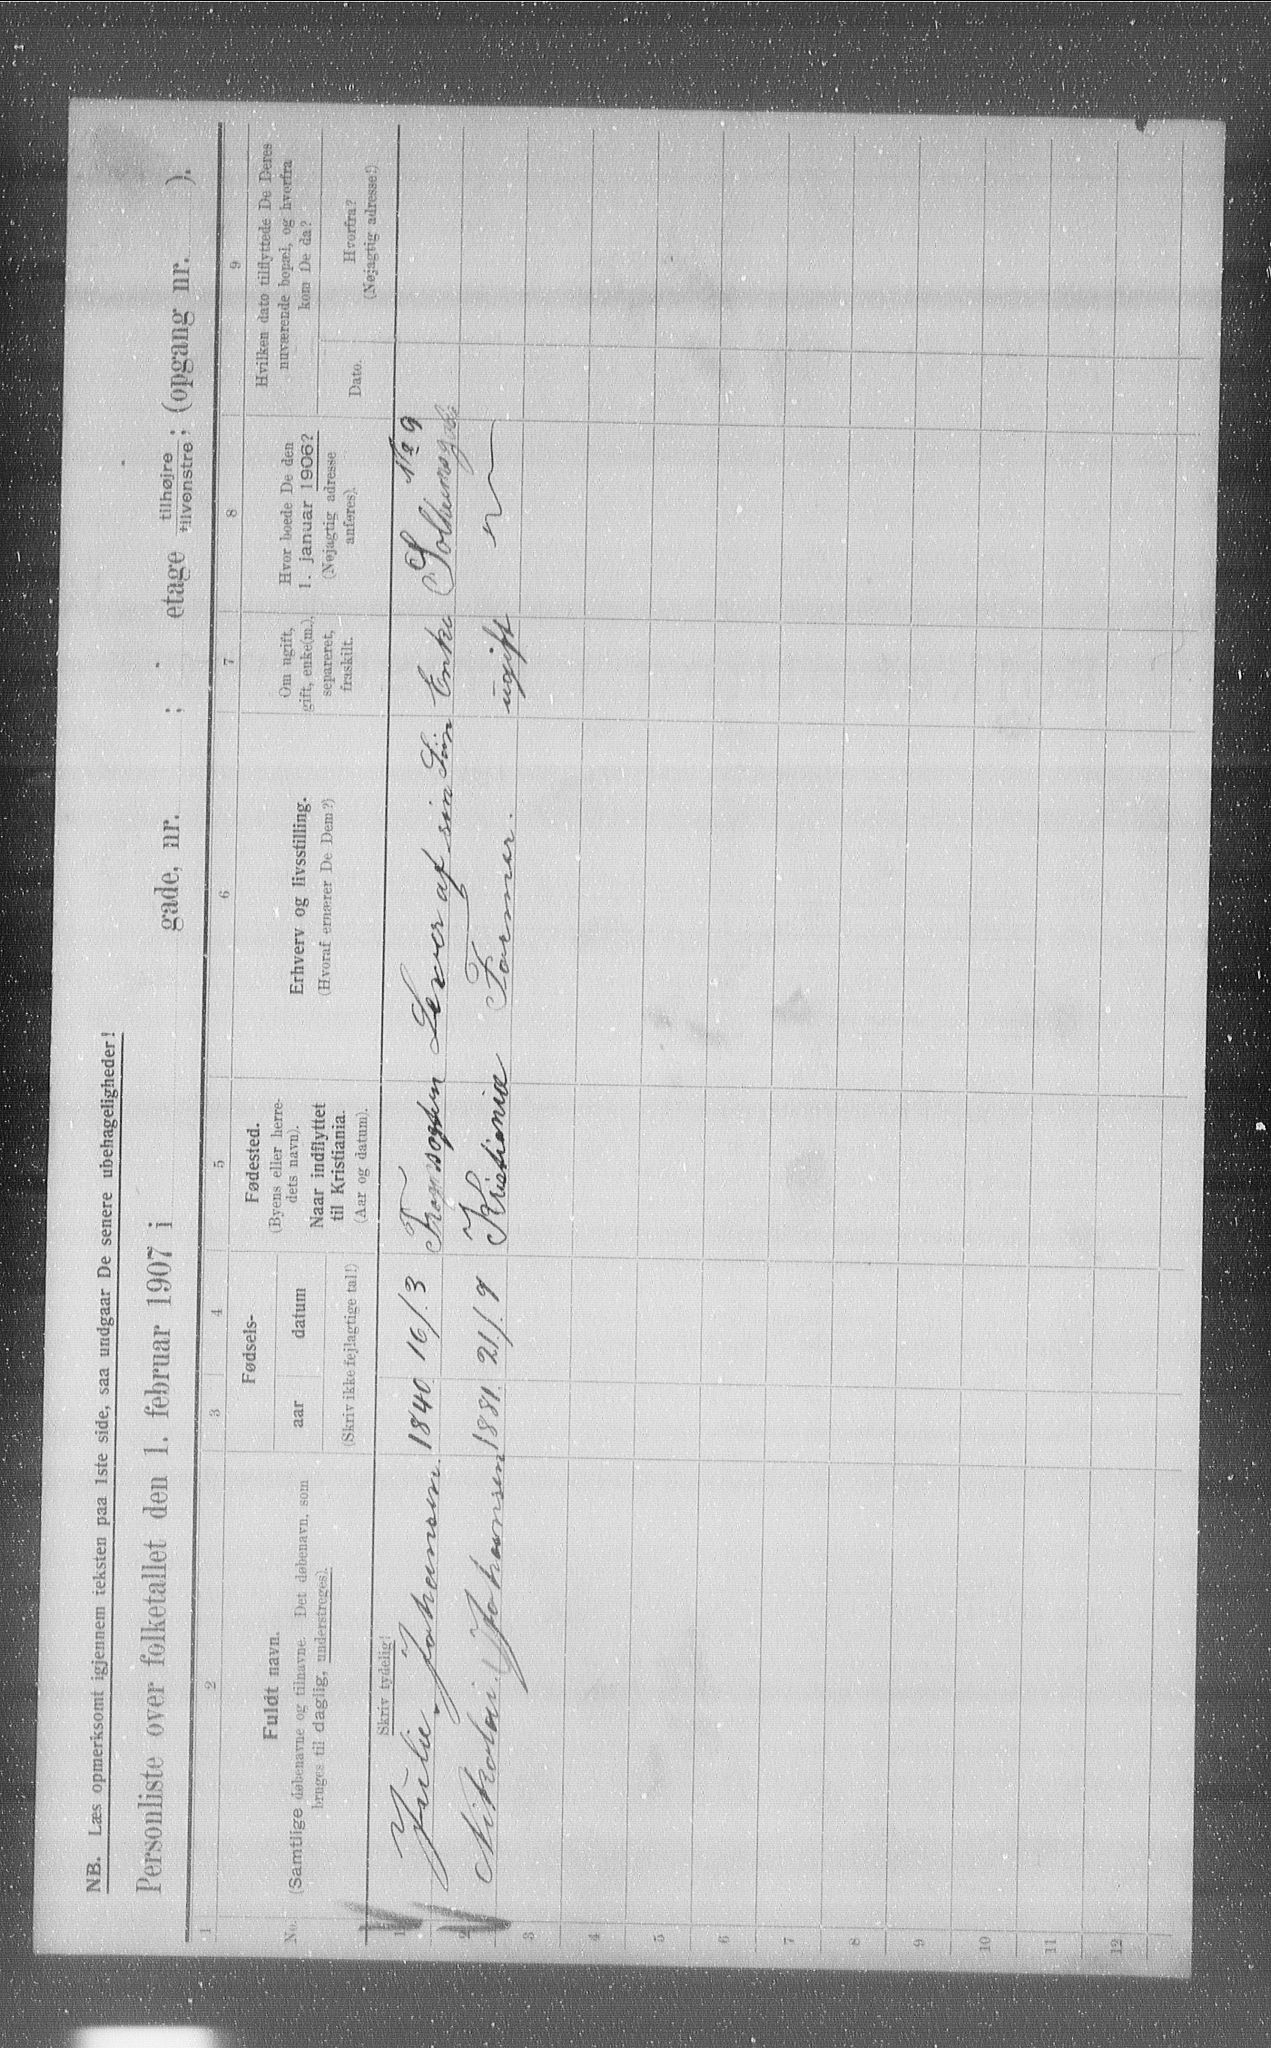 NB. Læs opmerksomt igjennem teksten paa 1ste side, saa undgaar De senere ubehageligheder!
Personliste over folketallet den 1. februar 1907 i gade, nr. ; etage tilhøjre tilvenstre; (opgang nr. ).
1 2 3 4 5 6 7 8 9
No. Fuldt navn. (Samtlige døbenavne og tilnavne. Det døbenavn, som bruges til daglig, understreges). Skriv tydelig!
Fødsels- aar datum (Skriv ikke fejlagtige tal!)
Fødested. (Byens eller herredets navn). Naar indflyttet til Kristiania. (Aar og datum).
Erhverv og livsstilling. (Hvoraf ernærer De Dem?)
Om ugift, gift, enke(m.), separeret, fraskilt.
Hvor boede De den 1. januar 1906? (Nøjagtig adresse anføres).
Hvilken dato tilflyttede De Deres nuværende bopæl, og hvorfra kom De da?
Dato. Hvorfra? (Nøjagtig adresse!)
1 Julie Johansen. 1840 16/.3 Lever af sin Søn Enke No 9
2 Nikolai Johansen 1881. 21/.9 Kristiania Former. ugift
3
4
5
6
7
8
9
10
11
12